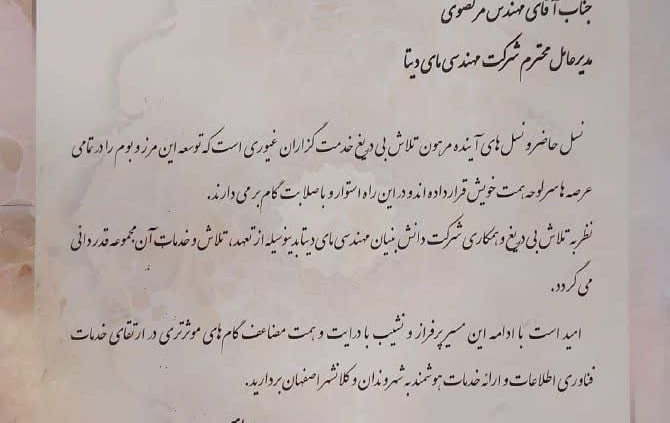 جناب آقای مهندس مرتضوی
مدیرعامل محترم شرکت مهندسی مای دیتا
نسل حاضر و نسل های آینده مرهون تلاش بی دریغ خدمت گزاران غیوری است که توسعه این مرز و بوم را در تمامی
عرصه ها سرلوحه همت خویش قرار داده اند و در این راه استوار و با صلابت گام بر می دارند.
نظر به تلاش بی دریغ و همکاری شرکت دانش بنیان مهندسی مای دیتا بدینوسیله از تعهد، تلاش و خدمات آن مجموعه قدردانی
می گردد.
امید است با ادامه این مسیر پرفراز و نشیب با درایت و همت مضاعف گام های موثرتری در ارتقای خدمات
فناوری اطلاعات و ارائه خدمات هوشمند به شهروندان و کلانشهر اصفهان بردارید.